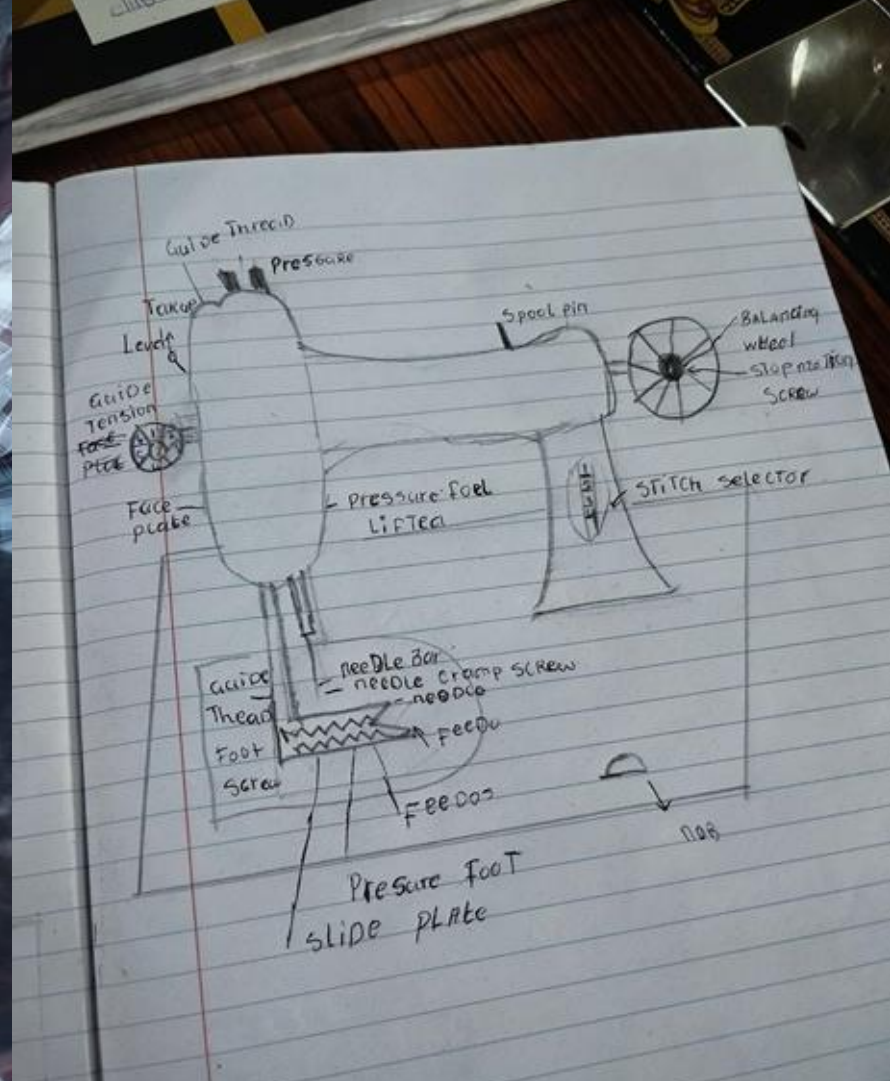 Guide Thread
Pressure
Takeup
Lever
Spool pin
BALancing
wheel
Stop motion
SCREW
GuiDe
Tension
Face
plate
Face
plate
Pressure foel
LiFTed
STiTCH SeLecTor
neeDLe Bar
neeDLe cramp SCREW
neeDLe
Guide
Thead
Foot
Screw
FeeDo
FeeDos
nob
Presure FooT
SLiDe PLAte